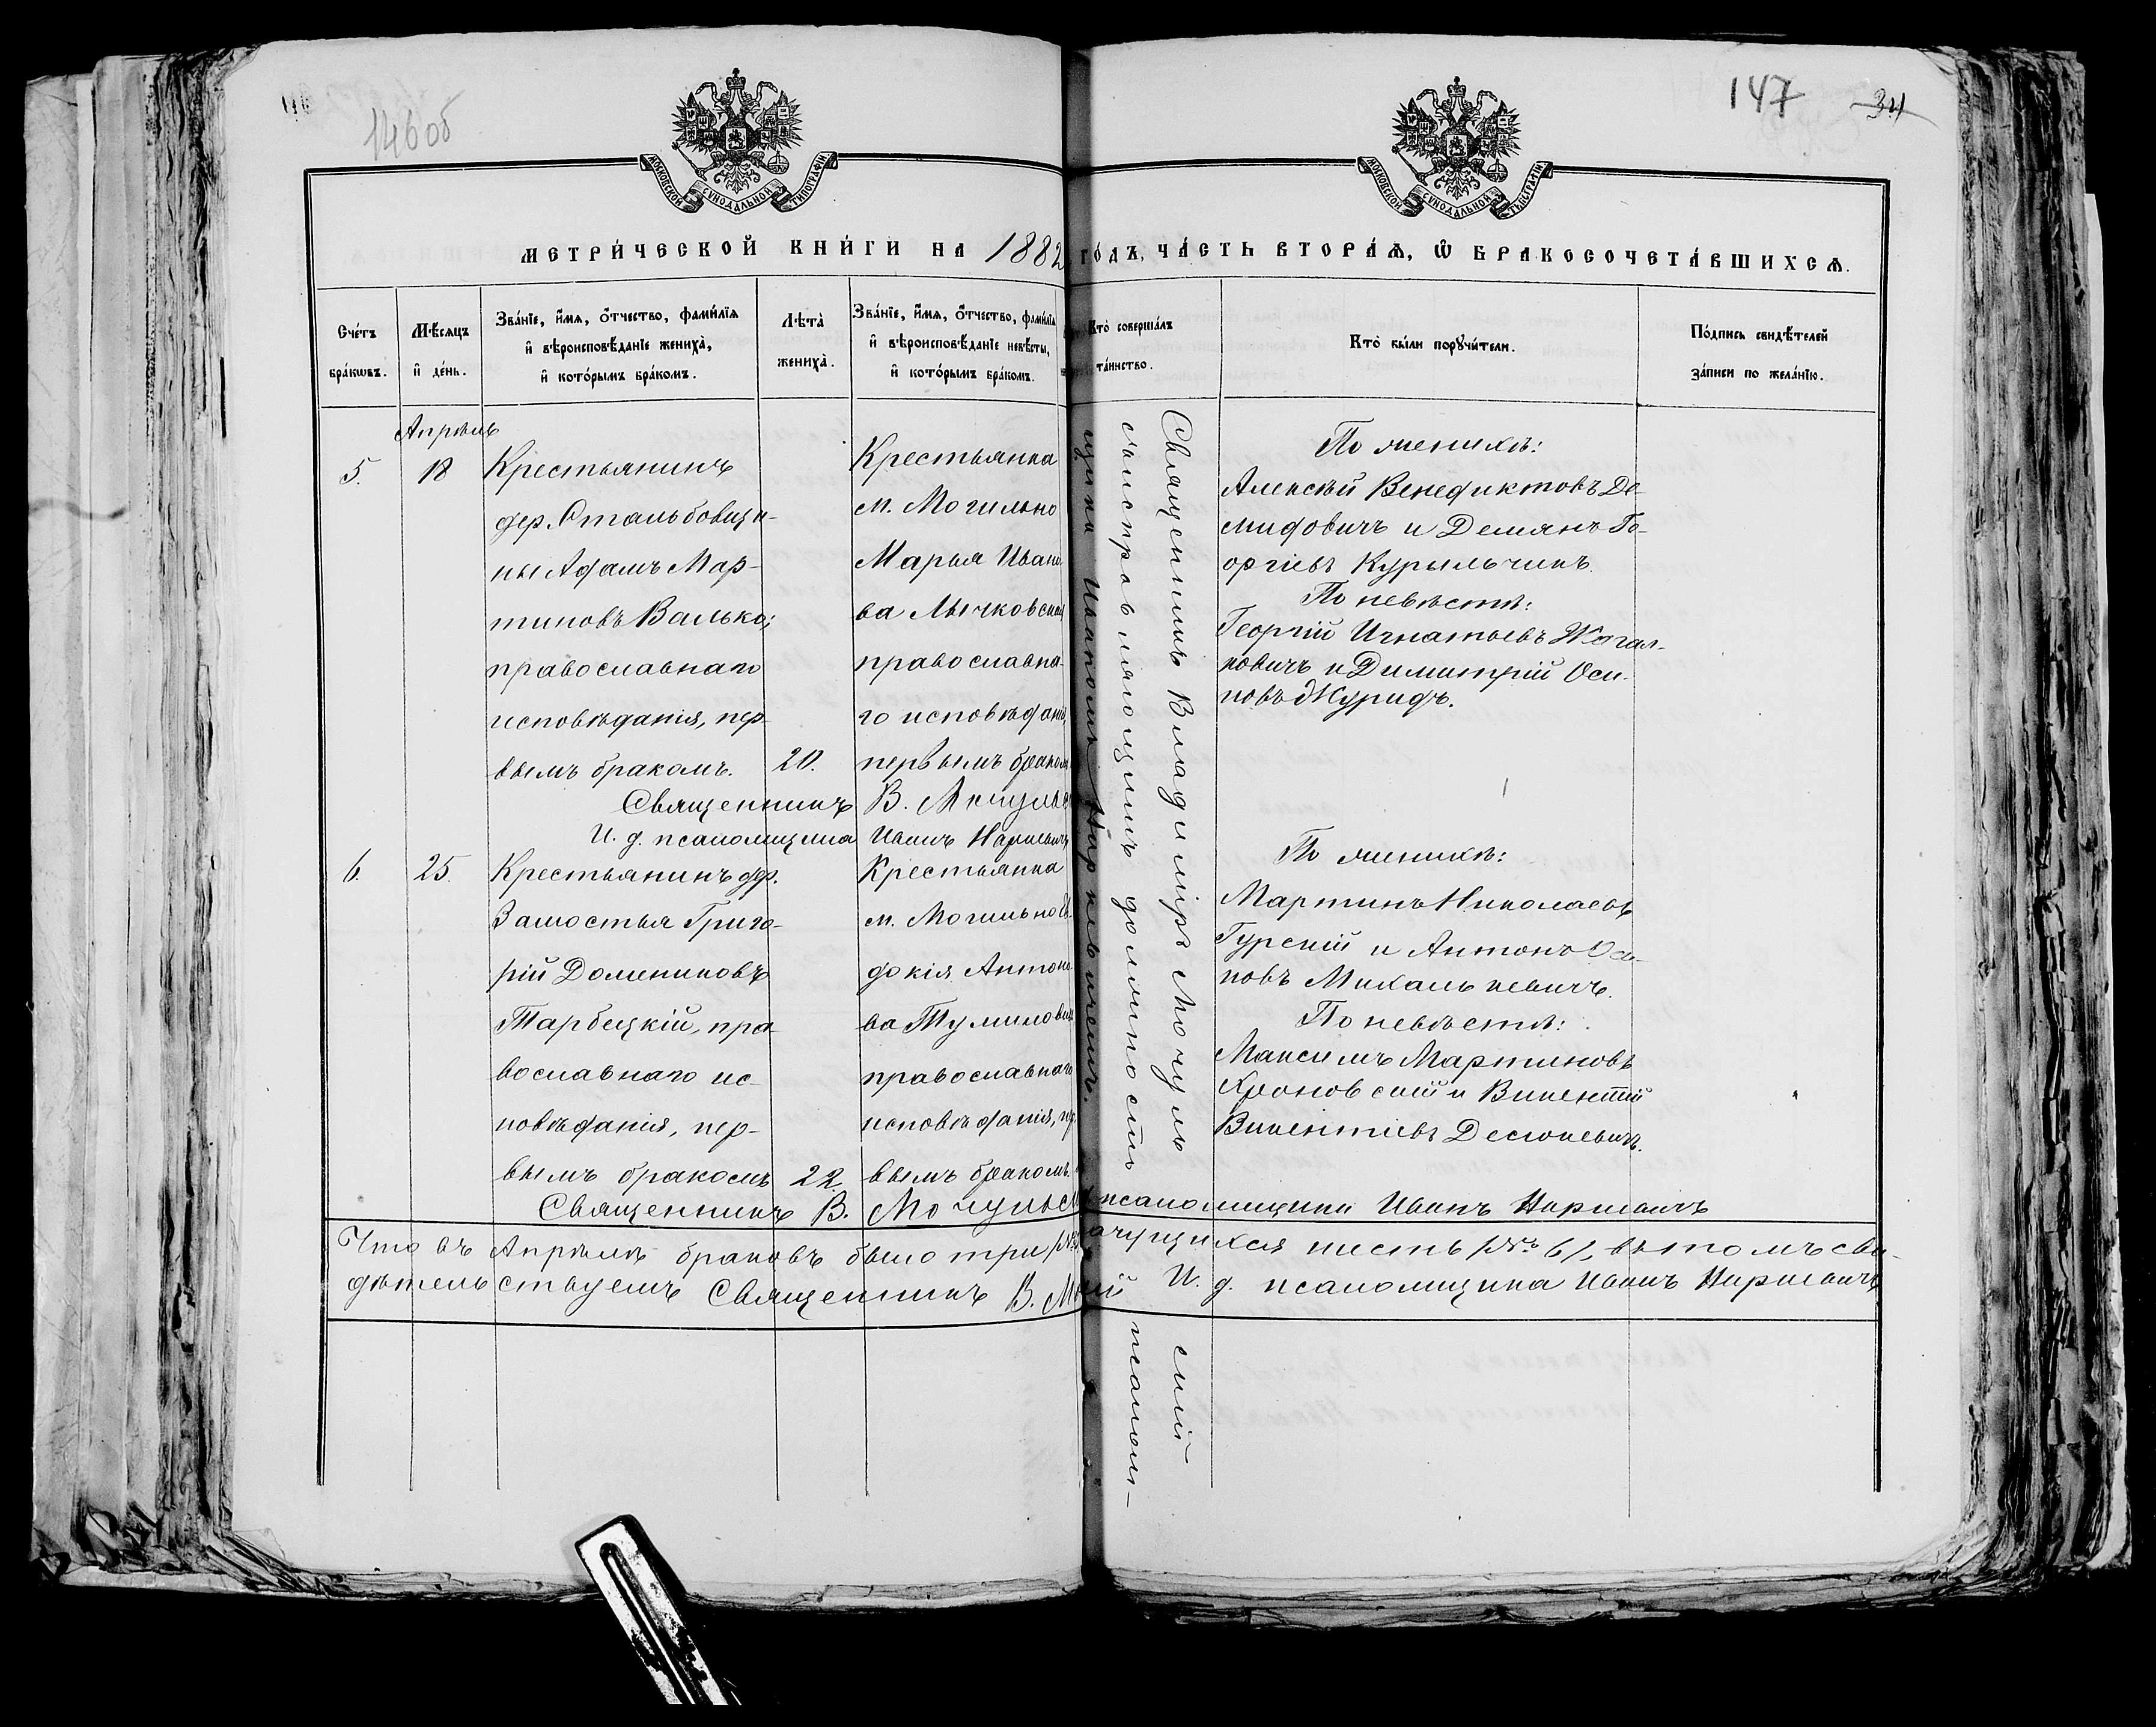 146об
147
34
МОСКОВСКОЙ СУНОДАЛЬНОЙ ТИПОГРАФІИ
МОСКОВСКОЙ СУНОДАЛЬНОЙ ТИПОГРАФІИ
МЕТРИ́ЧЕСКОЙ КНИ́ГИ НА 1882 ГО́ДЪ, ЧА́СТЬ ВТОРА́Ѧ, Ѽ БРАКОСОЧЕТА́ВШИХСѦ.
Сче́тъ
бра́кѡвъ.
Мѣ́сяцъ
и҆ де́нь.
Зва́нїе, и҆́мя, о҆́тчество, фами́лїя
и҆ вѣроисповѣ́данїе жениха̀,
и҆ кото́рымъ бра́комъ.
Лѣта̀
жениха̀.
Зва́нїе, и҆́мя, о҆́тчество, фами́лїя
и҆ вѣроисповѣ́данїе невѣ́сты,
и҆ кото́рымъ бра́комъ.
Кто̀ соверша́лъ
та́инство.
Кто̀ бы́ли порꙋчи́тели.
По́дпись свидѣ́телей
за́писи по жела́нїю.
Апрѣль
5.
18
Крестьянинъ
дер. Стальбовщи-
ны Адамъ Мар-
тиновъ Валько;
православнаго
исповѣданія, пер-
вымъ бракомъ.
20.
Крестьянка
м. Могильно
Марья Ивано-
ва Лычковская
православна-
го исповѣданія,
первымъ бракомъ
Священникъ В. Мочульс
И. д. псаломщика Иванъ Наркевичъ
Священникъ Владиміръ Мочульскій
съ исправляющимъ должность псалом-
щика Иваномъ Наркевичемъ.
По женихѣ:
Алексѣй Венедиктовъ Де-
мидовичъ и Демянъ Ге-
оргіевъ Курильчикъ.
По невѣстѣ:
Георгій Игнатьевъ Жагал-
ковичъ и Димитрій Оси-
повъ Журидъ.
6.
25.
Крестьянинъ дер.
Замостья Григо-
рій Домениковъ
Тарбецкій, пра-
вославнаго ис-
повѣданія, пер-
вымъ бракомъ
22
Крестьянка
м. Могильно Ев-
докія Антоно-
ва Тумилович
православнаго
исповѣданія, пер
вымъ бракомъ.
По женихѣ:
Мартинъ Николаевъ
Гурскій и Антонъ Оси-
повъ Михалькевичъ.
По невѣстѣ:
Максимъ Мартиновъ
Кроновскій и Викентій
Викентіевъ Десюкевичъ.
Священникъ В. Мочульс псаломщика Иванъ Наркевичъ
Что въ Апрѣлѣ браковъ было три а учущихся шесть (№ 6), въ томъ сви-
дѣтельствуемъ Священникъ В. М ій И. д. псаломщика Иванъ Наркевичъ